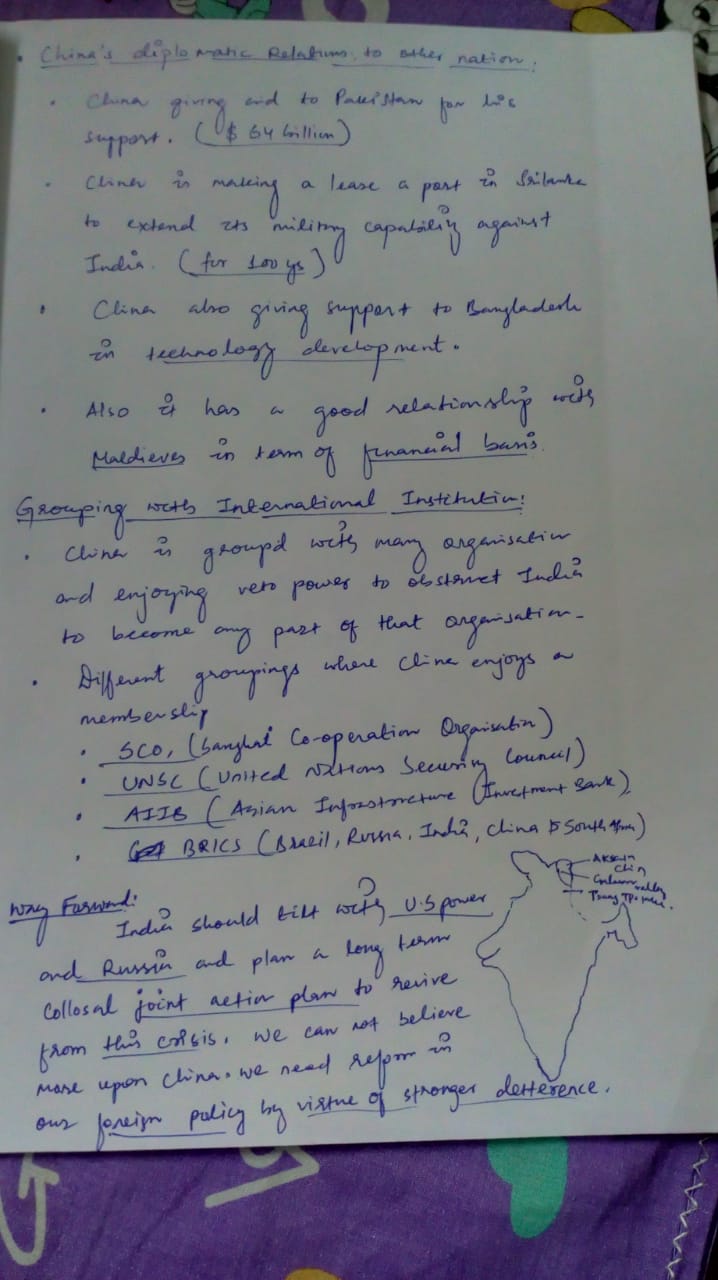 China's diplomatic Relations to other nation:
• China giving aid to Pakistan for his
support. ($ 64 billion)
• China is making a lease a port in Srilanka
to extend its military capability against
India. (for 100 ys)
• China also giving support to Bangladesh
in technology development.
• Also it has a good relationship with
Maldieves in term of financial basis.
Grouping with International Institution:
• China is groupd with many organisation
and enjoying veto power to obstruct India
to become any part of that organisation.
• Different groupings where China enjoys a
membership
• SCO, (Sanghai Co-operation Organisation)
• UNSC (United Nations Security Council)
• AIIB (Asian Infrastructure Investment Bank)
• BRICS (Brazil, Russia, India, China & South Africa)
Aksain
Chin
Galwan valley
Tsang
Way Forward:
India should tilt with U.S power
and Russia and plan a long term
collosal joint action plan to revive
from this crisis. we can not believe
more upon China. we need reform in
our foreign policy by virtue of stronger detterence.